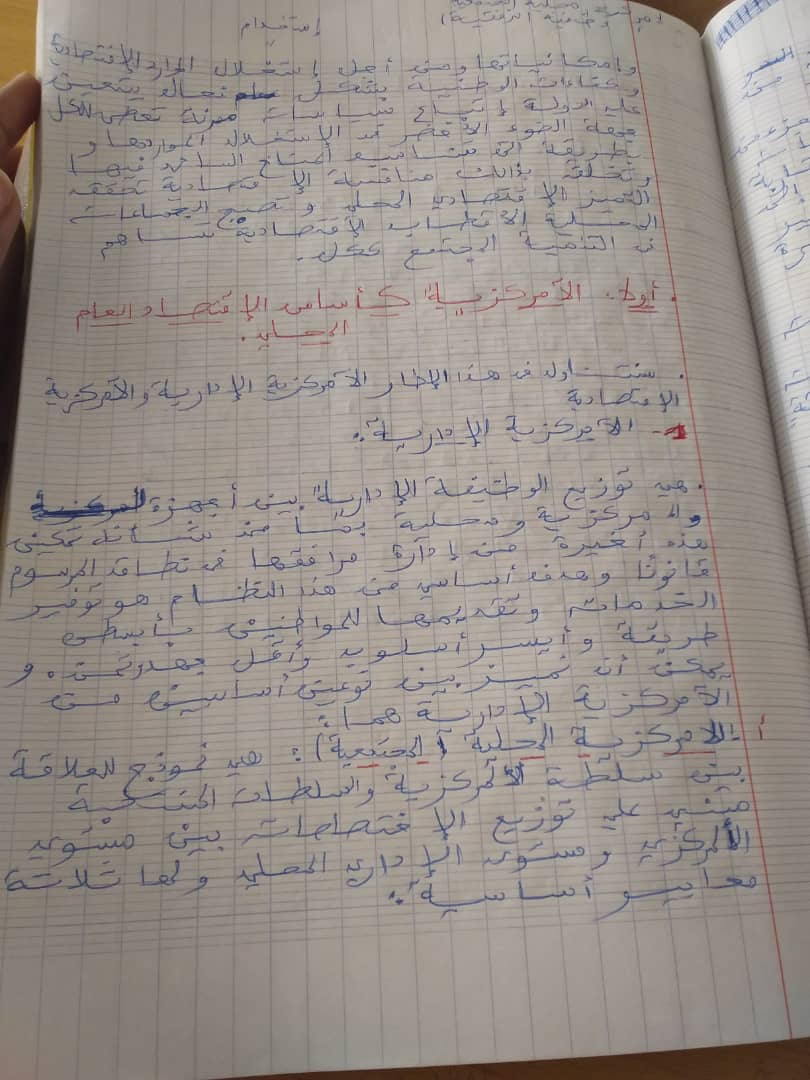 إستخدام
وإمكانياتها ومن أجل إستغلال الموارد الإقتصادية
وكفاءات الوطنية بشكل فعال يتعين
على الدولة إتباع سياسات مرنة تعطى لكل
جهة الضوء الأخضر في الإستغلال لمواردها و
بطريقة التي تتناسب المناخ السائد فيها
وتخلق بذالك منافسة الإقتصادية تحقق
التميز الإقتصادي المحلي وتصبح الجماعات
المحلية الأقطاب الإقتصادية تساهم
في التنمية المجتمع ككل.
أولا: الآمركزية كأساس الإقتصاد العام
المحلي.
. سنتناول في هذا الإطار الآمركزية الإدارية والآمركزية
الإقتصادية
1- الآمركزية الإدارية:
. هي توزيع الوظيفة الإدارية بين أجهزة المركزية
ولا مركزية ومحلية بما من شأنه تمكين
هذه أخيرة من إدارة مرافقها في نطاق المرسوم
قانونا وهدف أساسي من هذا النظام هو توفير
الخدمات وتقديمها للمواطنين بأبسط
طريقة وأيسر أسلوب وأقل جهد وثمن. و
يمكن أن نميز بين نوعين أساسين من
الآمركزية الإدارية هما:
أ- اللامركزية المحلية (المجتمعية): هي نموذج للعلاقة
بين سلطة المركزية والسلطات المنتخبة
مبني على توزيع الإختصاصات بين مستوى
المركزي ومستوى الإداري المحلي ولها ثلاثة
معايير أساسية: